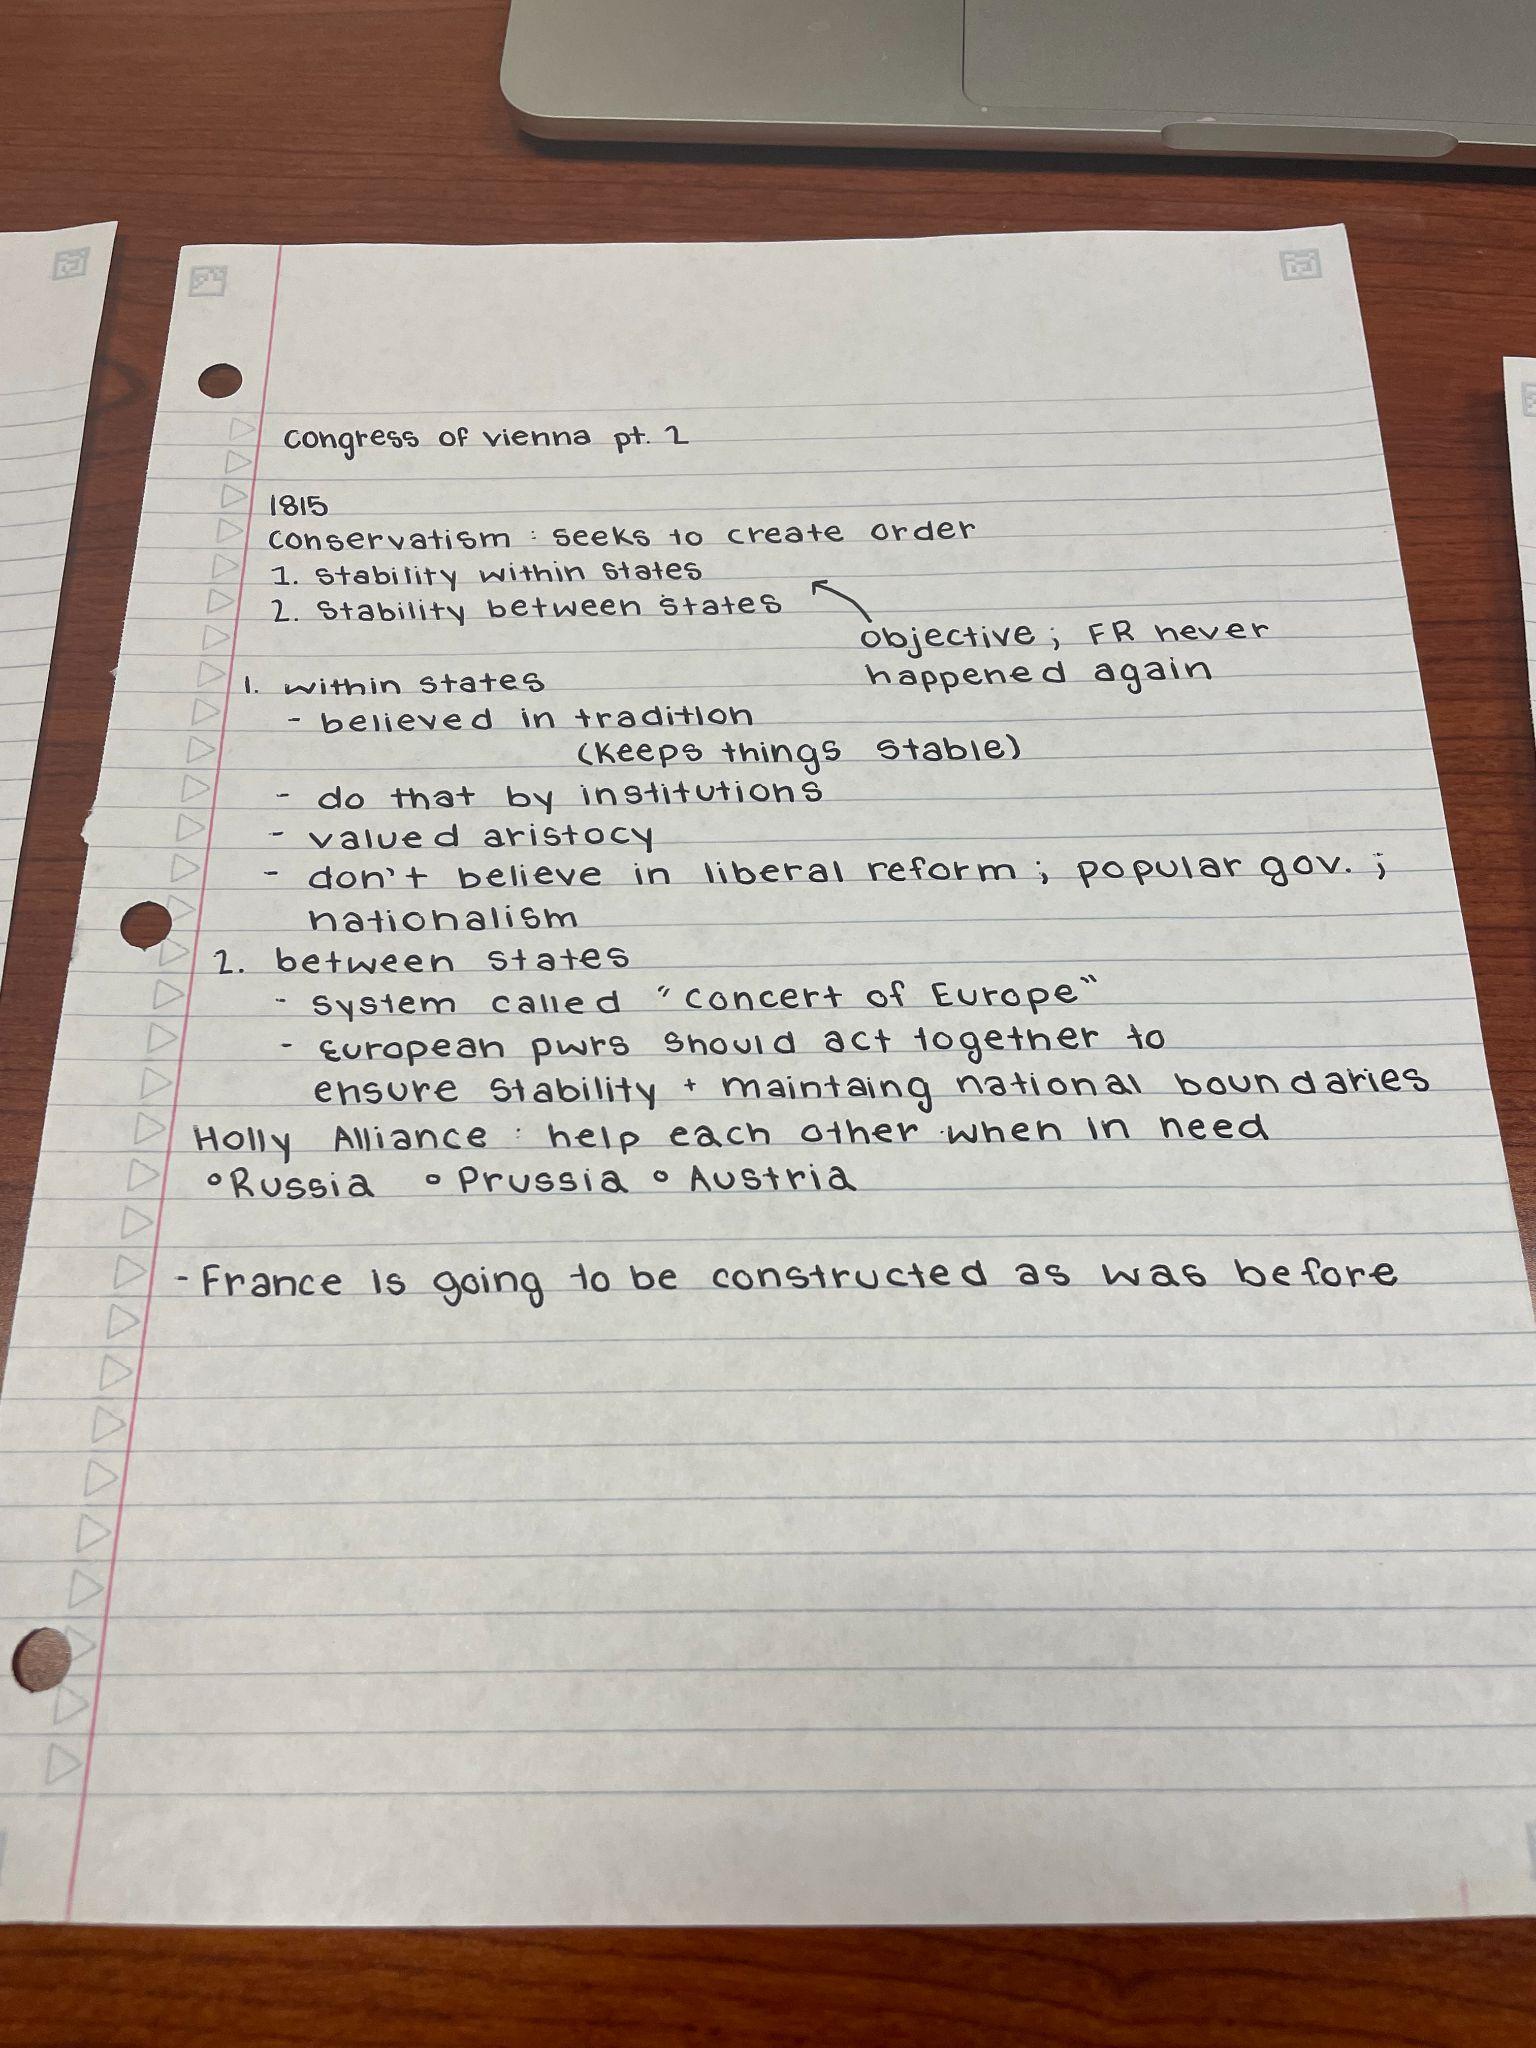 congress of vienna pt. 2
1815
conservatism : seeks to create order
1. stability within states
2. stability between states
objective; FR never
happened again
1. within states
- believed in tradition
(keeps things stable)
- do that by institutions
- valued aristocy
- don't believe in liberal reform ; popular gov. ;
nationalism
2. between states
- system called "concert of Europe"
- European pwrs should act together to
ensure stability + maintaing national boundaries
Holly Alliance : help each other when in need
° Russia ° Prussia ° Austria
- France is going to be constructed as was before